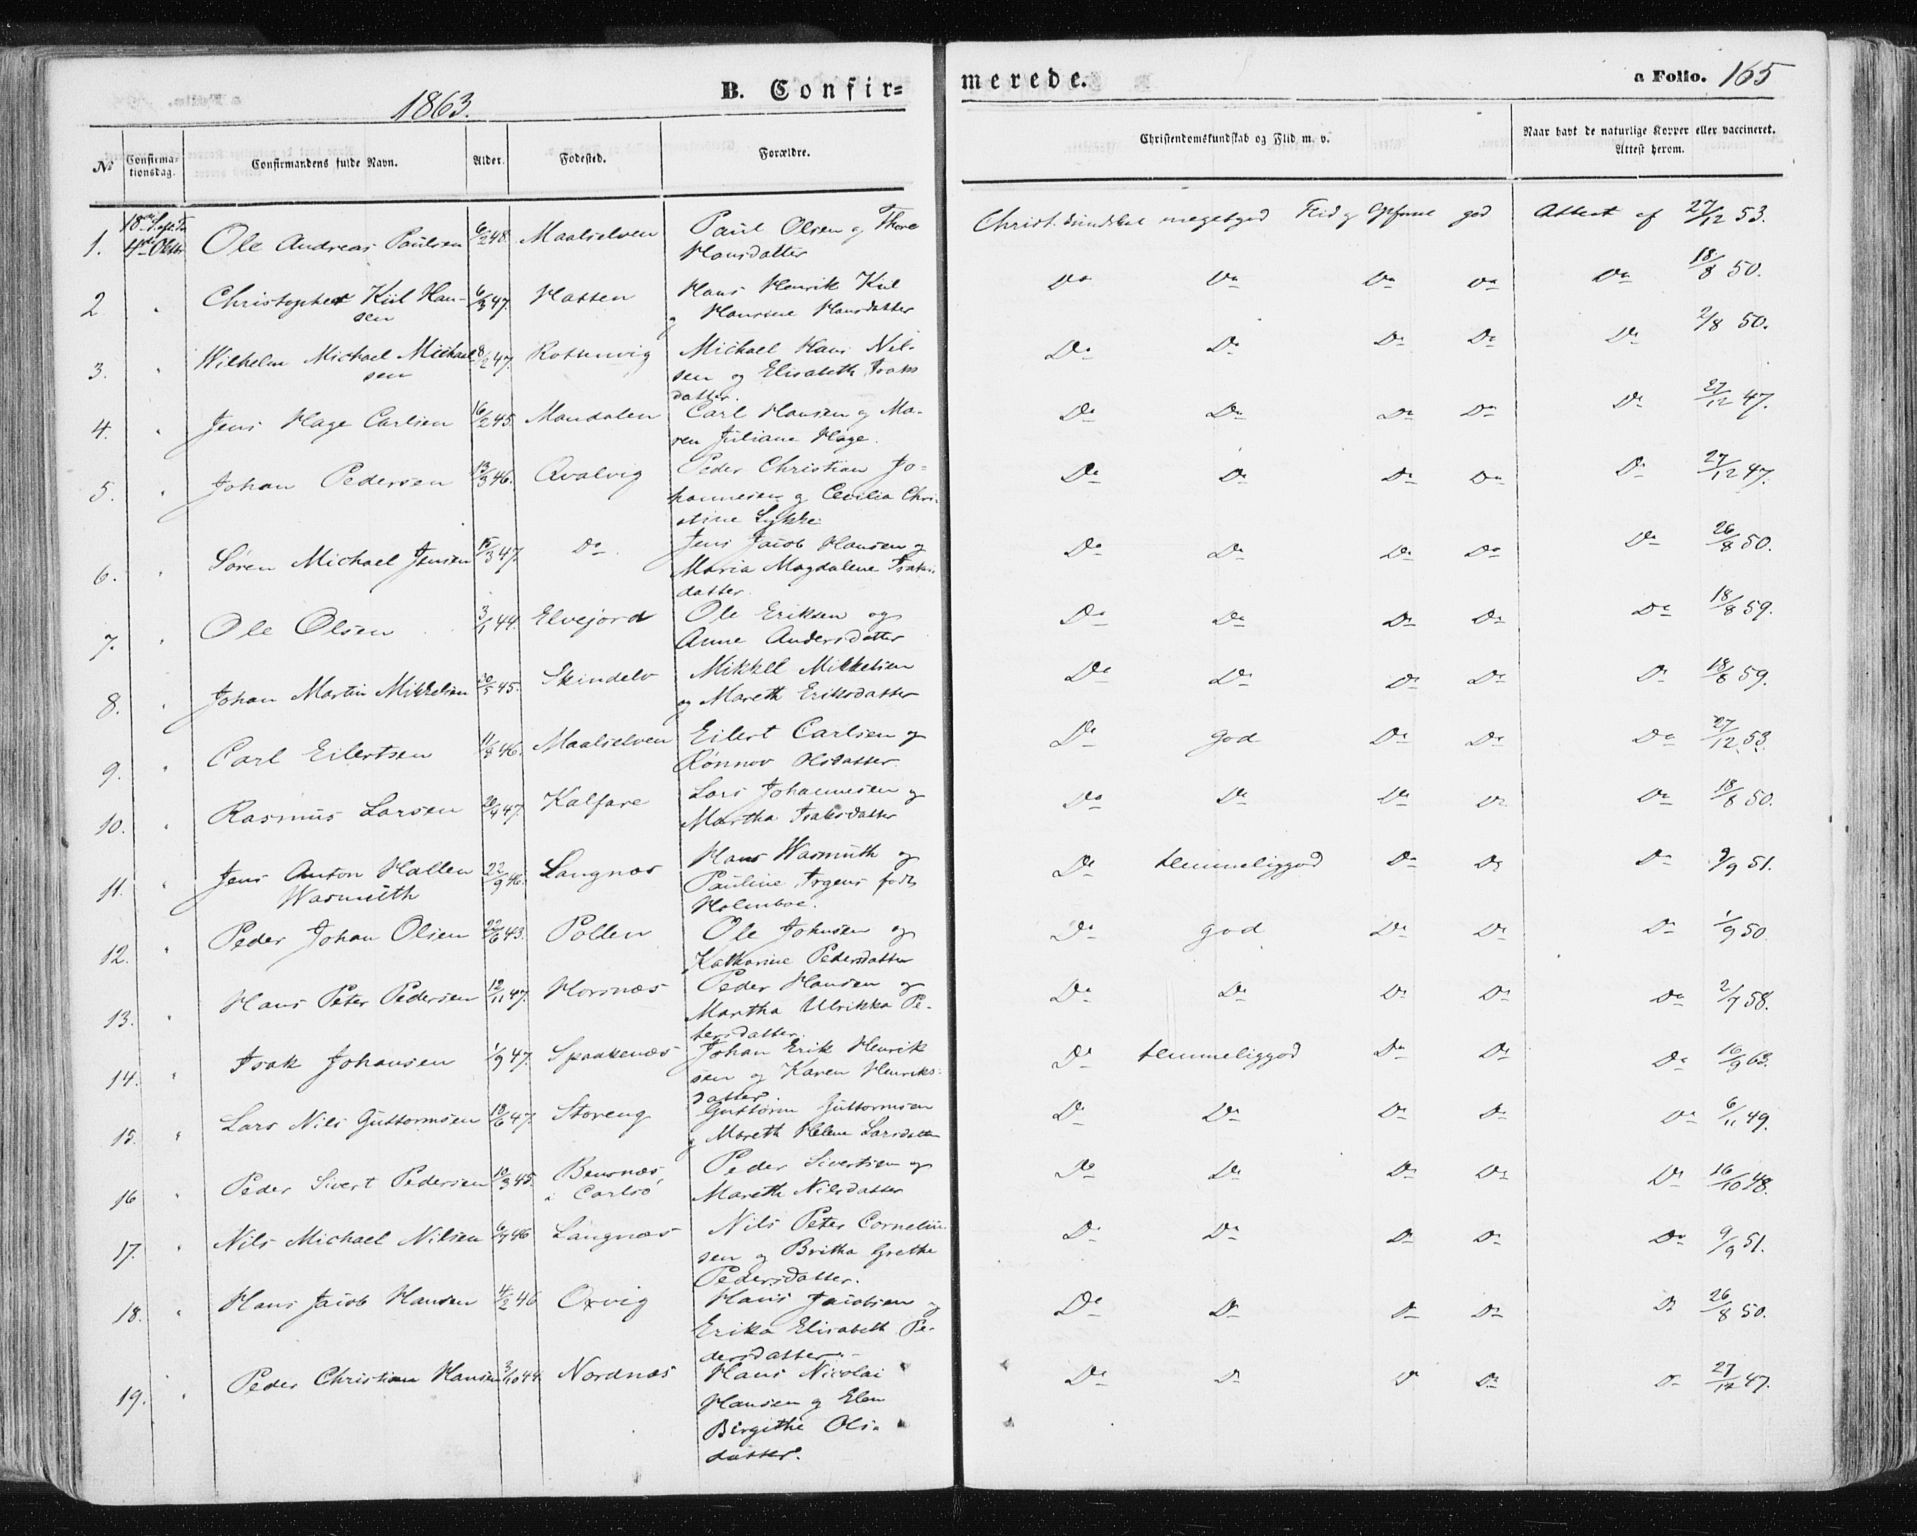 1863.
B. Confir=
merede.
a Folio. 165
No
Confirma-
tionsdag.
Confirmandens fulde Navn.
Alder.
Fødested.
Forældre.
Christendomskundskab og Flid m. v.
Naar havt de naturlige Kopper eller vaccineret.
Attest herom.
1. Ole Andreas Paulsen 6/2 48. Maalselven Paul Olsen og Thore
Hansdatter
meget god Flid og god Attest af 27/12 53.
2 Christopher Kiil Han-
sen 6/3 47. Hatten Hans Henrik Kiil
og Hansine Hansdatter
Do Do Do Do Do 18/8 50.
3. Wilhelm Michael Michael
sen 8/2 47. Rottenvig Michael Hans Nil-
sen og Elisabeth Isaks
datter.
Do Do Do Do Do 2/8 50.
4. Jens Hage Carlsen 16/2 45. Mandalen Carl Hansen og Ma-
ren Juliane Hage.
Do Do Do Do Do 27/12 47.
5. Johan Pedersen 13/3 46. Qvalvig Peder Christian Jo-
hannesen og Cecilia Chri-
stine Lykke
Do Do Do Do Do 27/12 47.
6. Søren Michael Jensen 15/3 47. Do Jens Jacob Hansen og
Maria Magdalene Isaks-
datter.
Do Do Do Do Do 26/8 50.
7. Ole Olsen 3/1 44. Elvejord Ole Eriksen og
Anne Andersdatter
Do Do Do Do Do 18/8 59.
8. Johan Martin Mikkelsen 20/5 45. Skindelv Mikkel Mikkelsen
og Mareth Eriksdatter
Do Do Do Do Do 18/8 59.
9. Carl Eilertsen 46. Maalselven Eilert Carlsen og
Rønnov Olsdatter.
Do god Do Do Do 27/12 53.
10. Rasmus Larsen 20/4 47. Kalfare Lars Johannesen og
Martha Isaksdatter
Do Do Do Do Do 18/8 50.
11. Jens Anton Hallen
Wasmuth 22/9 46. Langnæs Hans Wasmuth og
Pauline Irgens født
Holmboe.
Do temmelig god Do Do Do 9/9 51.
12. Peder Johan Olsen 22/6 43. Pollen Ole Johnsen og
Katharine Pedersdatter
Do god Do Do Do 1/9 50.
13. Hans Peter Pedersen 12/11 47. Horsnæs Peder Hansen og
Martha Ulrikka Pe-
tersdatter.
Do Do Do Do Do 2/7 58.
14. Isak Johansen 1/9 47. Spaakenæs Johan Erik Henrik
sen og Karen Henriks-
datter.
Do temmelig god Do Do Do 16/9 63.
15. Lars Nils Guttormsen 18/6 47. Storeng Guttorm Guttormsen
og Mareth Helene Larsdatter
Do Do Do Do Do 6/11 49.
16 Peder Sivert Pedersen 10/3 45. Beusnæs,
i Carlsø Peder Sivertsen og
Mareth Nilsdatter
Do Do Do Do Do 16/10 48.
17. Nils Michael Nilsen 46 Langnæs Nils Peter Corneliu
sen og Britha Grethe
Pedersdatter.
Do Do Do Do Do 9/9 51.
18. Hans Jacob Hansen 4/2 46 Oxvig Hans Jacobsen og
Erika Elisabeth Pe-
dersdatter.
Do Do Do Do Do 26/8 50.
19. Peder Christian Hansen 3/10 44. Nordnæs Hans Nicolai
Hansen og Elen
Birgithe Ols-
datter.
Do Do Do Do Do 27/12 47.